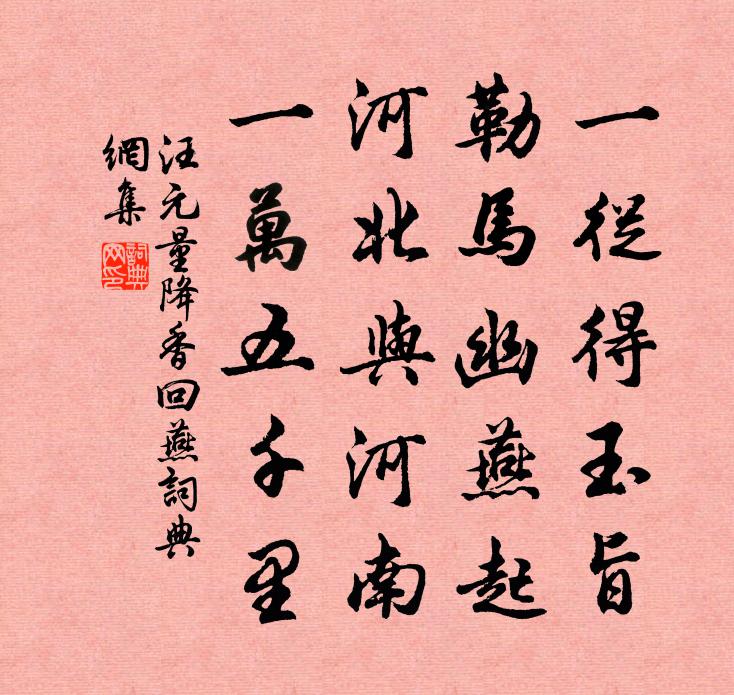 一從得玉旨
勒馬幽燕起
河北與河南
一萬五千里
汪元量降香回燕詞典
網集
詞典网印